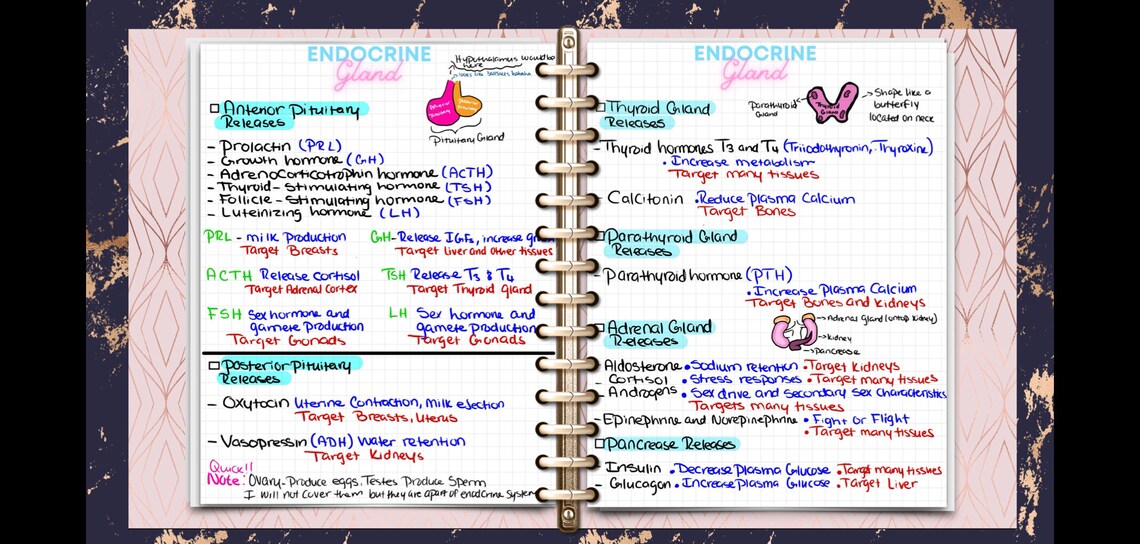 ENDOCRINE
Gland
Hypothalamus would be
here
Anterior Pituitary
Releases
Pituitary Gland
- Prolactin (PRL)
- Growth hormone (GH)
- Adrenocorticotrophin hormone (ACTH)
- Thyroid-Stimulating hormone (TSH)
- Follicle-Stimulating hormone (FSH)
- Luteinizing hormone (LH)
PRL - milk Production
Target Breasts
GH - Release IGFs, increase
Target Liver and other tissues
ACTH Release cortisol
Target Adrenal Cortex
TSH Release T3 & T4
Target Thyroid gland
FSH Sex hormone and
gamete Production
Target Gonads
LH Sex hormone and
gamete Production
Target Gonads
Posterior Pituitary
Releases
- Oxytocin Uterine Contraction, milk ejection
Target Breasts, Uterus
- Vasopressin (ADH) Water retention
Target Kidneys
Quick!!
Note: Ovary-Produce eggs, Testes Produce Sperm
I will not cover them but they are apart of endocrine system
ENDOCRINE
Gland
Thyroid Gland
Releases
Parathyroid
Gland
Thyroid
Gland
Shape like a
butterfly
located on neck
- Thyroid hormones T3 and T4 (Triiodothyronin, Thyroxine)
• Increase metabolism
Target many tissues
Calcitonin • Reduce Plasma Calcium
Target Bones
Parathyroid Gland
Releases
- Parathyroid hormone (PTH)
• Increase Plasma Calcium
Target Bones and Kidneys
Adrenal Gland
Releases
Adrenal Gland (ontop kidney)
kidney
Pancrease
Aldosterone • Sodium retention • Target Kidneys
- Cortisol • Stress responses • Target many tissues
- Androgens • Sex drive and Secondary Sex Characteristics
Targets many tissues
- Epinephrine and Norepinephrine • Fight or Flight
• Target many tissues
Pancrease Releases
- Insulin • Decrease Plasma Glucose • Target many tissues
- Glucagon • Increase Plasma Glucose • Target Liver